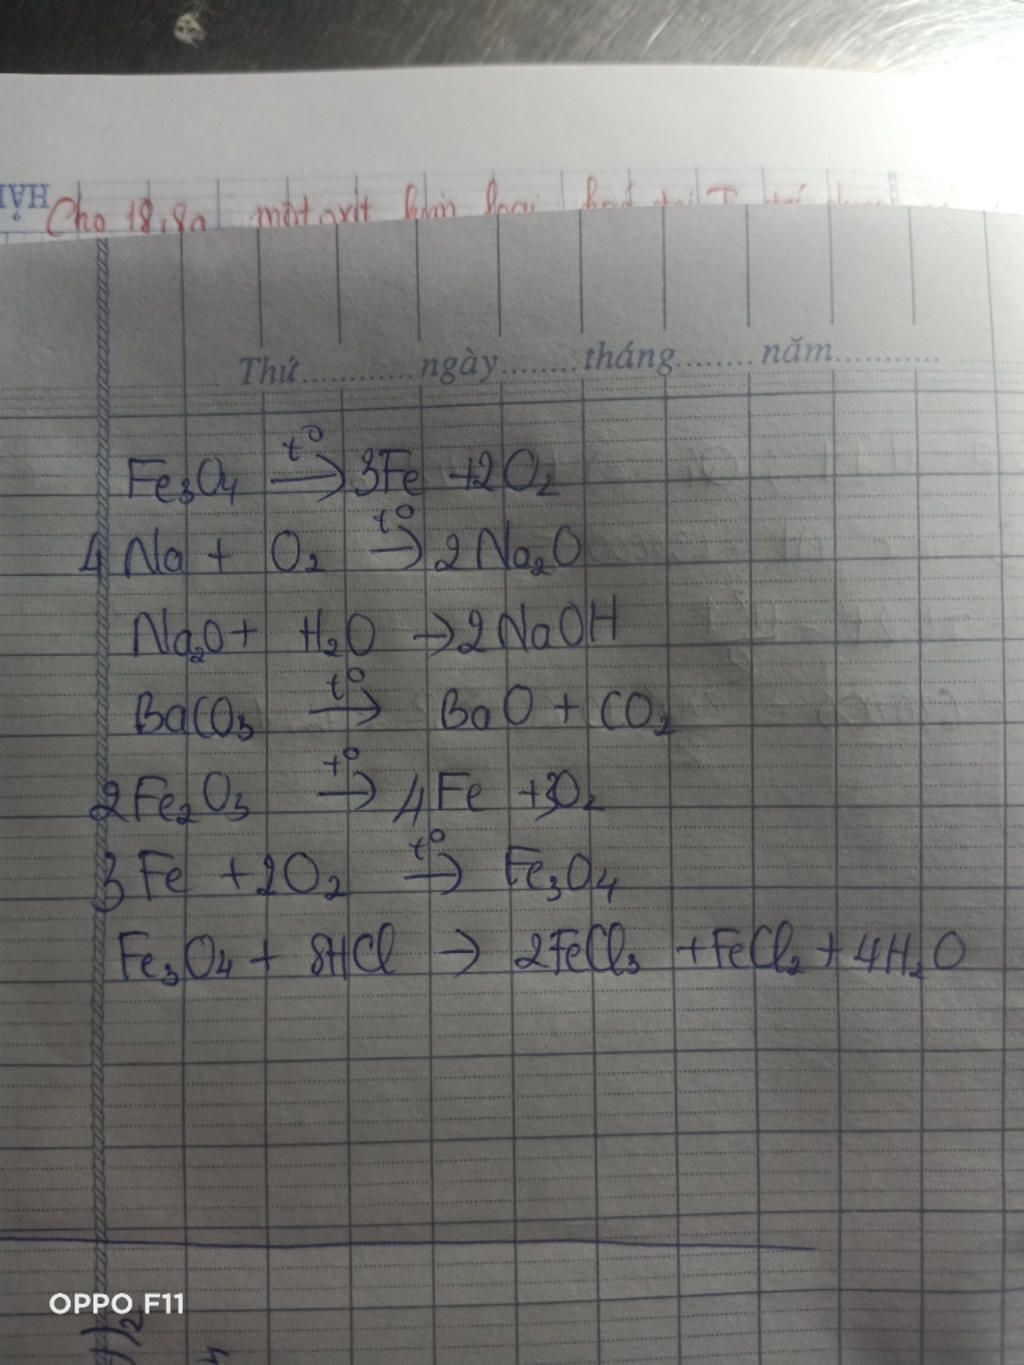 HẢI
Cho 18,8g một oxit kim loại hoá trị I
Thứ............ngày........tháng........năm...........
Fe₃O₄ t⁰→ 3Fe +2O₂
4Na + O₂ t⁰→ 2Na₂O
Na₂O + H₂O → 2NaOH
BaCO₃ t⁰→ BaO + CO₂
2Fe₂O₃ t⁰→ 4Fe +3O₂
3Fe +2O₂ t⁰→ Fe₃O₄
Fe₃O₄ + 8HCl → 2FeCl₃ +FeCl₂ + 4H₂O
OPPO F11